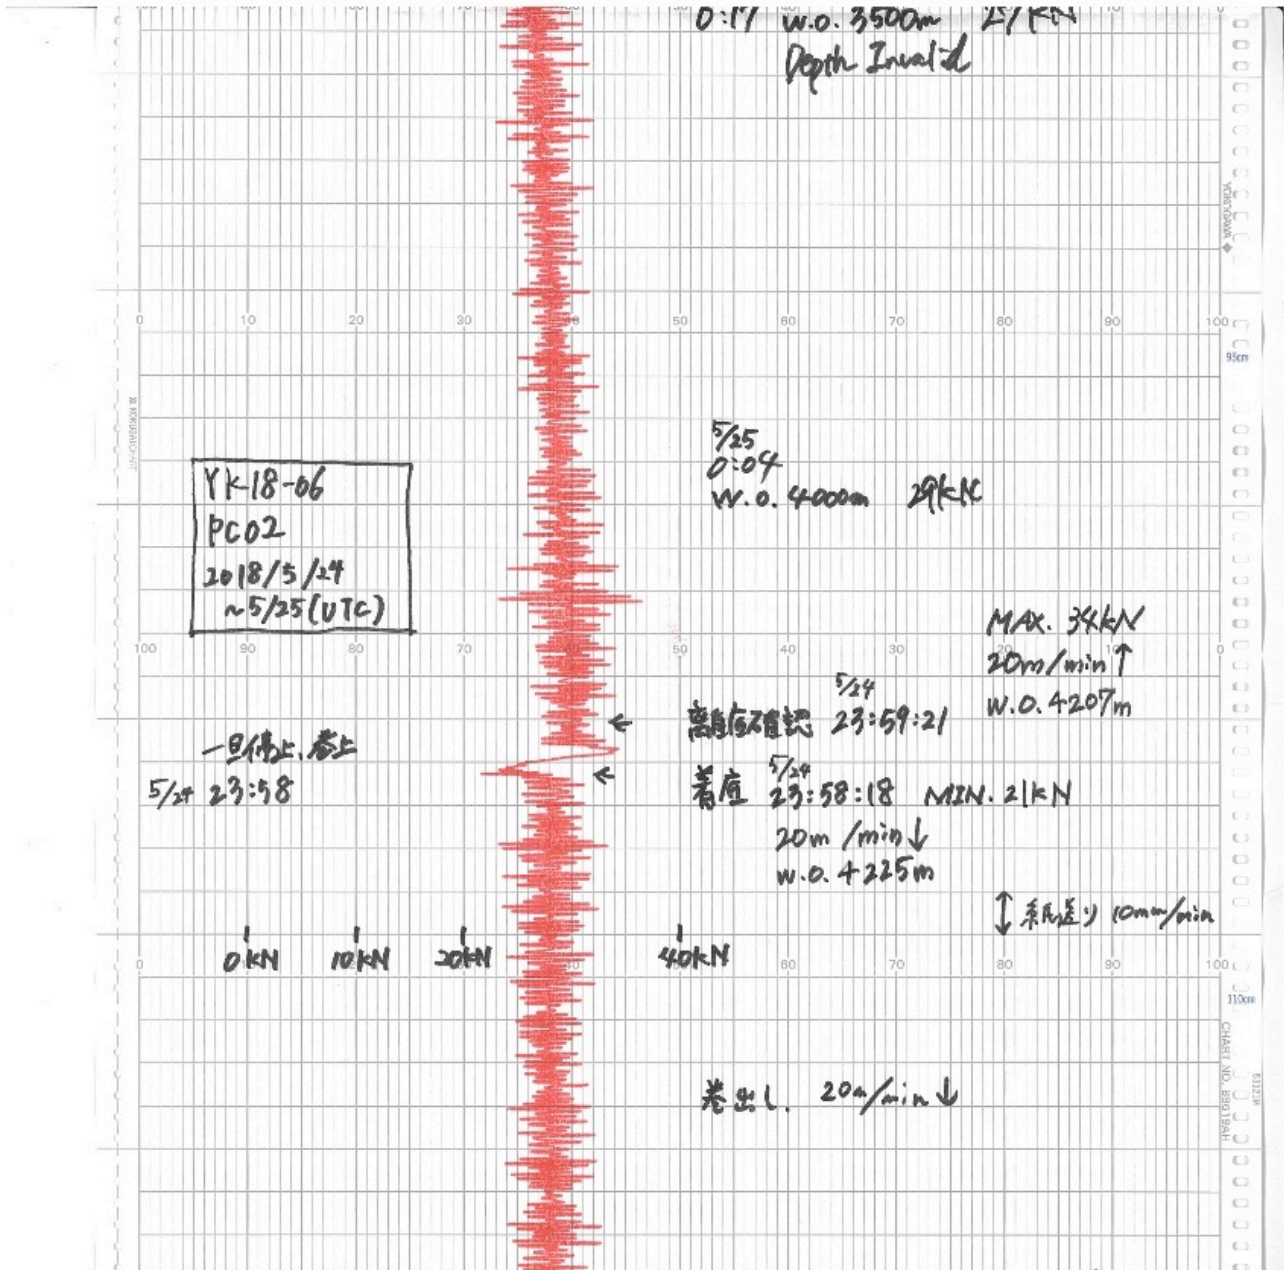 0:17 W.O. 3500m 27kN
Depth Invalid
YOKOGAWA
0 10 20 30 40 50 60 70 80 90 100
93cm
KOKUSAI CHART
5/25
0:04
W.O. 4000m 29kN
YK18-06
PC02
2018/5/24
~5/25(UTC)
MAX. 34kN
100 90 80 70 60 50 40 30 20 10 0
20m/min↑
W.O.4207m
5/24
離底確認 23:59:21
一旦停止、巻上
5/24 23:58
5/24
着底 23:58:18 MIN. 21kN
20m/min↓
W.O. 4225m
↕ 紙送り 10mm/min
0kN 10kN 20kN 40kN
0 40 60 70 80 90 100
110cm
CHART NO. B9619AH
巻出し. 20m/min↓